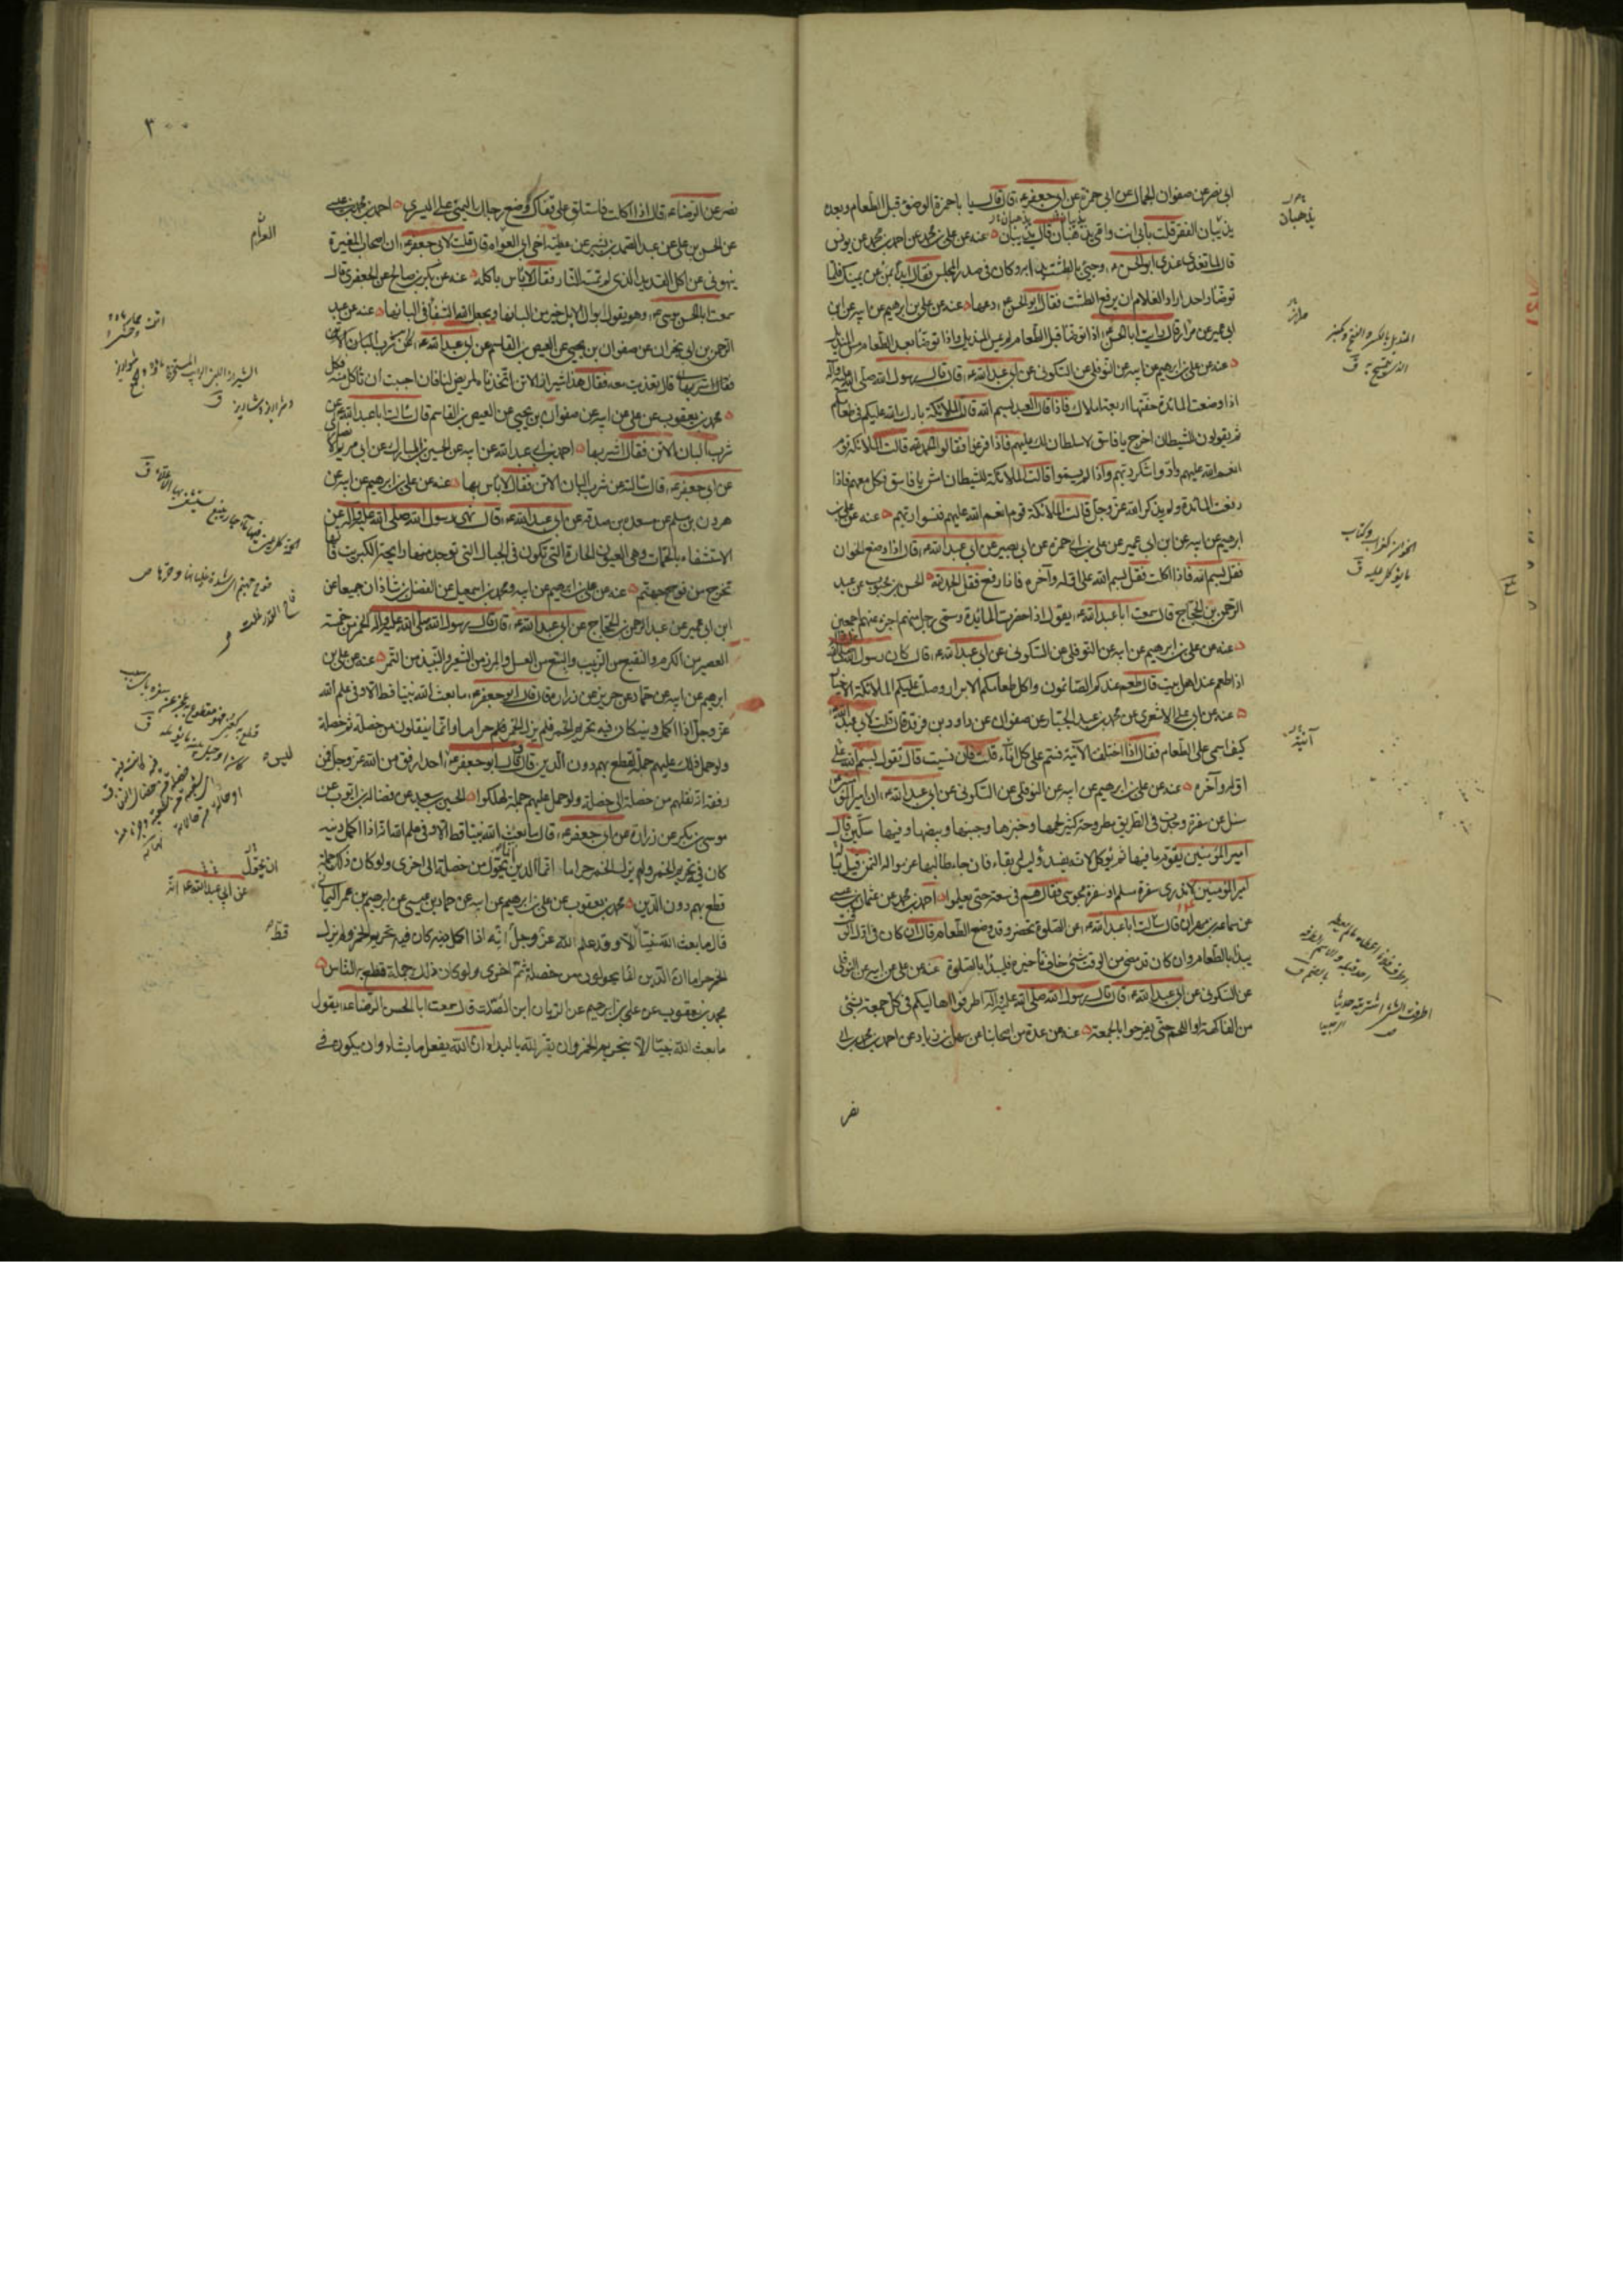 ابى نصر عن صفوان الجمال عن ابى حمزة عن ابى جعفر ع قال قال يا با حمزة الوضوء قبل الطعام وبعده
يذيبان الفقر قلت بابى انت وامى يذهبان قال يذيبان عنه عن على بن محمد عن احمد بن محمد عن يونس
قال لما تغدى عندى ابو الحسن ع وجئ بالطشت بدئ به وكان فى صدر المجلس فقال ابدأ بمن عن يمينك فلما
توضأ واحد اراد الغلام ان يرفع الطشت فقال ابو الحسن ع دعها عنه عن على بن ابرهيم عن ابيه عن ابن
ابى عمير عن مرازم قال رايت ابا الحسن ع اذا توضأ قبل الطعام لم يمس المنديل واذا توضأ بعد الطعام مس المنديل
عنه عن على بن ابرهيم عن ابيه عن النوفلى عن السكونى عن ابى عبد الله ع قال قال رسول الله صلى الله عليه وآله
اذا وضعت المائدة حفتها اربعة املاك فاذا قال العبد بسم الله قالت الملائكة بارك الله عليكم فى طعامكم
ثم يقولون للشيطان اخرج يا فاسق لا سلطان لك عليهم فاذا فرغوا فقالوا الحمد لله قالت الملائكة قوم
انعم الله عليهم فادوا شكر ربهم واذا لم يسموا قالت الملائكة للشيطان ادن يا فاسق فكل معهم فاذا
رفعت المائدة ولم يذكر الله عز وجل قالت الملائكة قوم انعم الله عليهم فنسوا ربهم عنه عن على بن
ابرهيم عن ابيه عن ابن ابى عمير عن على بن ابى حمزة عن ابى بصير عن ابى عبد الله ع قال اذا وضع الخوان
فقل بسم الله فاذا اكلت فقل بسم الله على اوله وآخره فاذا رفع فقل الحمد لله الحسن بن محبوب عن عبد
الرحمن بن الحجاج قال سمعت ابا عبد الله ع يقول اذا حضرت المائدة وسمى رجل منهم اجزء عنهم اجمعين
عنه عن على بن ابرهيم عن ابيه عن النوفلى عن السكونى عن ابى عبد الله ع قال كان رسول الله صلى الله عليه وآله
اذا طعم عند اهل بيت قال طعم عندكم الصائمون واكل طعامكم الابرار وصلت عليكم الملائكة الاخيار
عنه عن ابى على الاشعرى عن محمد بن عبد الجبار عن صفوان عن داود بن فرقد قال قلت لابى عبد الله ع
كيف اسمى على الطعام فقال اذا اختلفت الآنية فسم على كل اناء قلت فان نسيت قال تقول بسم الله على
اوله وآخره عنه عن على بن ابرهيم عن ابيه عن النوفلى عن السكونى عن ابى عبد الله ع ان امير المؤمنين
سئل عن سفرة وجدت فى الطريق مطروحة كثير لحمها وخبزها وجبنها وبيضها وفيها سكين قال
امير المؤمنين يقوم ما فيها ثم يؤكل لانه يفسد وليس له بقاء فان جاء طالبها غرموا له الثمن قيل يا
امير المؤمنين لا ندرى سفرة مسلم او سفرة مجوسى فقال هم فى سعة حتى يعلموا احمد بن محمد عن عثمان بن عيسى
عن سماعة بن مهران قال سالت ابا عبد الله ع عن الصلوة تحضر وقد وضع الطعام قال ان كان فى اول الوقت
يبدأ بالطعام وان كان قد مضى من الوقت شئ خاف تأخيره فليبدأ بالصلوة عنه عن على عن ابيه عن النوفلى
عن السكونى عن ابى عبد الله ع قال قال رسول الله صلى الله عليه وآله اطرفوا اهاليكم فى كل جمعة بشئ
من الفاكهة او اللحم حتى يفرحوا بالجمعة عنه عن عدة من اصحابنا عن سهل بن زياد عن احمد بن محمد بن ابى
نصر
يذهبان
آنية
٣٠٠
نصر عن الرضا ع قال اذا اكلت فاستلق على قفاك وضع رجلك اليمنى على اليسرى احمد بن محمد بن عيسى
عن الحسن بن على عن عبد الصمد بن بشير عن عطية اخى ابى العوام قال قلت لابى جعفر ع ان اصحاب المغيرة
ينهونى عن اكل القديد الذى لم تمسه النار فقال لا باس باكله عنه عن بكر بن صالح عن الجعفرى قال
سمعت ابا الحسن موسى ع وهو يقول ابوال الابل خير من البانها ويجعل الله الشفاء فى البانها عنه عن عبد
الرحمن بن ابى نجران عن صفوان بن يحيى عن العيص بن القاسم عن ابى عبد الله ع عن شرب البان الاتن
فقال اشربها قال تغديت معه فقال هذا شيراز الاتن اتخذناه لمريض لنا فان احببت ان تأكل منه فكل
محمد بن يعقوب عن على عن ابيه عن صفوان بن يحيى عن العيص بن القاسم قال سالت ابا عبد الله ع عن
شرب البان الاتن فقال اشربها احمد بن ابى عبد الله عن ابيه عن الحسين بن المبارك عن ابى مريم الانصارى
عن ابى جعفر ع قال سالته عن شرب البان الاتن فقال لا باس بها عنه عن على بن ابرهيم عن ابيه عن
هرون بن مسلم عن مسعدة بن صدقة عن ابى عبد الله ع قال نهى رسول الله صلى الله عليه وآله عن
الاستشفاء بالحمات وهى العيون الحارة التى تكون فى الجبال التى توجد منها رايحة الكبريت فانها
تخرج من فوح جهنم عنه عن على بن ابرهيم عن ابيه ومحمد بن اسمعيل عن الفضل بن شاذان جميعا عن
ابن ابى عمير عن عبد الرحمن بن الحجاج عن ابى عبد الله ع قال قال رسول الله صلى الله عليه وآله الخمر من خمسة
العصير من الكرم والنقيع من الزبيب والبتع من العسل والمزر من الشعير والنبيذ من التمر عنه عن على بن
ابرهيم عن ابيه عن حماد عن حريز عن زرارة قال قال ابو جعفر ع ما بعث الله نبيا قط الا وفى علم الله
عز وجل اذا اكمل دينه كان فيه تحريم الخمر فلم يزل الخمر حراما وانما ينقلون من خصلة ثم خصلة
ولو حمل ذلك عليهم جملة لقطع بهم دون الدين قال قال ابو جعفر ع ليس احد ارفق من الله عز وجل فمن
رفقه انه نقلهم من خصلة الى خصلة ولو حمل عليهم جملة لهلكوا الحسين بن سعيد عن فضالة بن ايوب عن
موسى بن بكر عن زرارة عن ابى جعفر ع قال ما بعث الله نبيا قط الا وفى علم الله انه اذا اكمل دينه
كان فى تحريم الخمر ولم يزل الخمر حراما انما الدين يتحول من خصلة الى اخرى ولو كان ذلك جملة
قطع بهم دون الدين محمد بن يعقوب عن على بن ابرهيم عن ابيه عن حماد بن عيسى عن ابرهيم بن عمر اليمانى
قال ما بعث الله نبيا الا وقد علم الله عز وجل انه اذا اكمل دينه كان فيه تحريم الخمر ولم يزل
الخمر حراما ان الدين انما يحولون من خصلة ثم اخرى ولو كان ذلك جملة قطع بالناس
محمد بن يعقوب عن على بن ابرهيم عن الريان ابن الصلت قال سمعت ابا الحسن الرضا ع يقول
ما بعث الله نبيا الا بتحريم الخمر وان يقر لله بالبداء ان الله يفعل ما يشاء وان يكون فى
العوام
ليس
ان يتحول
عن ابى عبد الله عليه السلام
قط